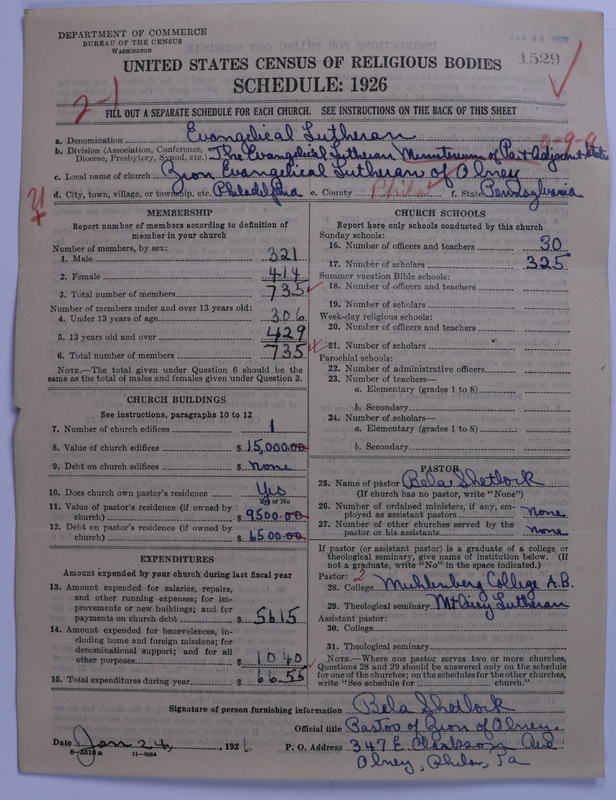 DEPARTMENT OF COMMERCE
BUREAU OF THE CENSUS
WASHINGTON
JAN 25 1927
1529
UNITED STATES CENSUS OF RELIGIOUS BODIES
SCHEDULE: 1926
2-1
FILL OUT A SEPARATE SCHEDULE FOR EACH CHURCH. SEE INSTRUCTIONS ON THE BACK OF THIS SHEET
a. Denomination Evangelical Lutheran
b. Division (Association, Conference, Diocese, Presbytery, Synod, etc.) The Evangelical Lutheran Ministerium of Pa & Adjacent States
c. Local name of church Zion Evangelical Lutheran of Olney
d. City, town, village, or township, etc. Philadelphia e. County Phila f. State Pennsylvania
MEMBERSHIP
Report number of members according to definition of
member in your church
Number of members, by sex:
1. Male 321
2. Female 414
3. Total number of members 735
Number of members under and over 13 years old:
4. Under 13 years of age 306
5. 13 years old and over 429
6. Total number of members 735
NOTE.—The total given under Question 6 should be
same as the total of males and females given under Question 3.
CHURCH BUILDINGS
See instructions, paragraphs 10 to 12
7. Number of church edifices 1
8. Value of church edifices $ 15,000.00
9. Debt on church edifices $ None
10. Does church own pastor's residence Yes
Yes or No
11. Value of pastor's residence (if owned by
church) $ 9500.00
12. Debt on pastor's residence (if owned by
church) $ 6500.00
EXPENDITURES
Amount expended by your church during last fiscal year
13. Amount expended for salaries, repairs,
and other running expenses; for im-
provements or new buildings; and for
payments on church debt $ 5615
14. Amount expended for benevolences, in-
cluding home and foreign missions; for
denominational support; and for all
other purposes $ 1040
15. Total expenditures during year $ 6655
CHURCH SCHOOLS
Report here only schools conducted by this church
Sunday schools:
16. Number of officers and teachers 30
17. Number of scholars 325
Summer vacation Bible schools:
18. Number of officers and teachers
19. Number of scholars
Week-day religious schools:
20. Number of officers and teachers
21. Number of scholars
Parochial schools:
22. Number of administrative officers
23. Number of teachers—
a. Elementary (grades 1 to 8)
b. Secondary
24. Number of scholars—
a. Elementary (grades 1 to 8)
b. Secondary
PASTOR
25. Name of pastor Bela Shetlock
(If church has no pastor, write "None")
26. Number of ordained ministers, if any, em-
ployed as assistant pastors None
27. Number of other churches served by the
pastor or his assistants None
If pastor (or assistant pastor) is a graduate of a college or
theological seminary, give name of institution below. (If
not a graduate, write "No" in the space indicated.)
Pastor: 2
28. College Muhlenberg College A.B.
29. Theological seminary Mt Airy Lutheran
Assistant pastor:
30. College
31. Theological seminary
NOTE.—Where one pastor serves two or more churches,
Questions 28 and 29 should be answered only on the schedule
for one of the churches; on the schedules for the other churches,
write "See schedule for church."
Signature of person furnishing information Bela Shetlock
Official title Pastor of Zion of Olney.
Date Jan 24, 1926 P. O. Address 347 E. Clarkson Ave
8—5518a 11—9054 Olney, Phila, Pa